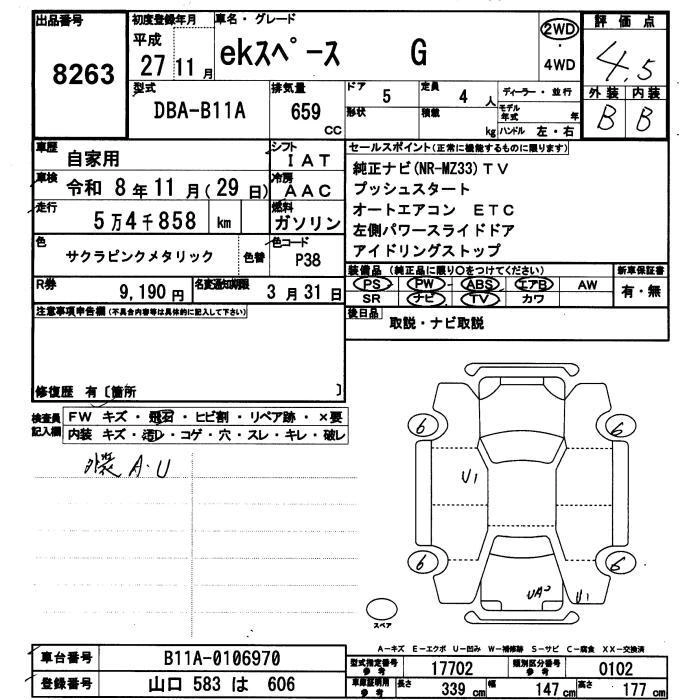 出品番号
8263
初度登録年月
平成
27 11 月
車名・グレード
ekスペース G
2WD
・
4WD
評価点
4.5
外装 内装
B B
型式
DBA-B11A
排気量
659
CC
ドア
5
定員
4 人
形状
積載
kg
ディーラー・並行
モデル年式 年
ハンドル 左・右
車歴
自家用
シフト
IAT
車検
令和 8 年 11 月 (29 日)
冷房
AAC
走行
5万4千858 km
燃料
ガソリン
色
サクラピンクメタリック
色替
色コード
P38
R券
9,190 円
名変通知期限
3 月 31 日
セールスポイント(正常に機能するものに限ります)
純正ナビ(NR-MZ33)TV
プッシュスタート
オートエアコン ETC
左側パワースライドドア
アイドリングストップ
装備品 (純正品に限り○をつけてください)
PS PW ABS エアB AW
SR ナビ TV カワ
新車保証書
有・無
後日品
取説・ナビ取説
注意事項申告欄(不具合内容等は具体的に記入して下さい)
修復歴 有〔箇所 〕
検査員
記入欄
FW キズ・飛石・ヒビ割・リペア跡・×要
内装 キズ・汚レ・コゲ・穴・スレ・キレ・破レ
外装 A・U
6
6
U1
6
6
UA2
U1
スペア
A-キズ E-エクボ U-凹み W-補修跡 S-サビ C-腐食 XX-交換済
車台番号
B11A-0106970
登録番号
山口 583 は 606
型式指定番号
参考
17702
類別区分番号
参考
0102
車庫証明用
参考
長さ
339 cm
幅
147 cm
高さ
177 cm